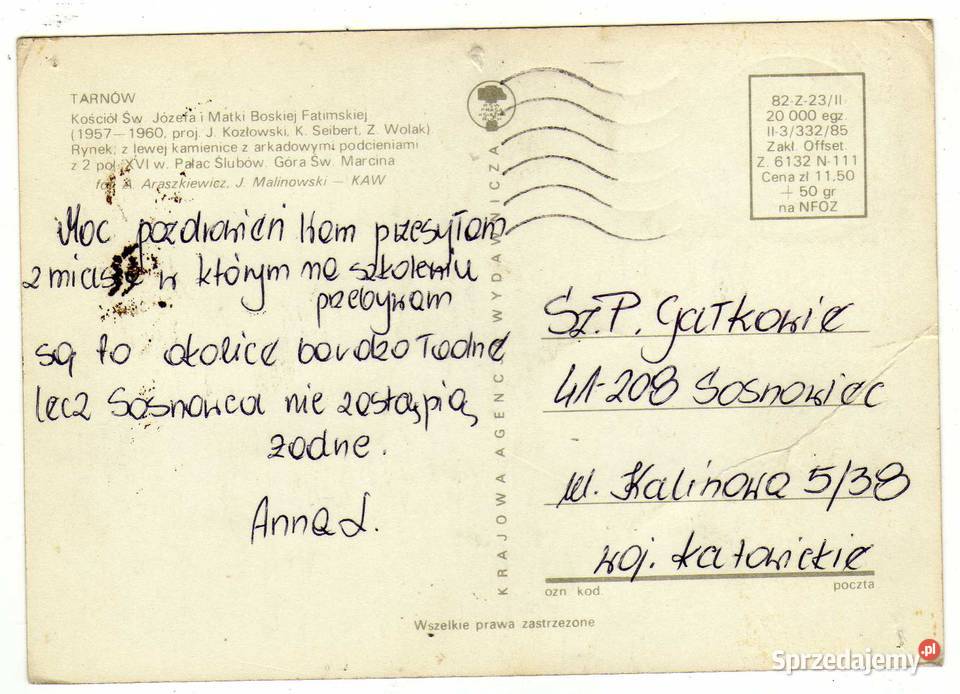 TARNÓW
Kościół Św. Józefa i Matki Boskiej Fatimskiej
(1957—1960, proj. J. Kozłowski, K. Seibert, Z. Wolak)
Rynek, z lewej kamienice z arkadowymi podcieniami
z 2 poł. XVI w. Pałac Ślubów. Góra Św. Marcina
fot. A. Araszkiewicz, J. Malinowski — KAW
Moc pozdrowień Wam przesyłam
z miasta w którym na szkoleniu
przebywam
są to okolice bardzo ładne
lecz Sosnowca nie zastąpią
żadne.
Anna L.
KRAJOWA AGENCJA WYDAWNICZA
82-Z-23/II
20 000 egz.
II-3/332/85
Zakł. Offset.
Z. 6132 N-111
Cena zł 11,50
+ 50 gr
na NFOZ
Sz.P. Gałkowie
41-208 Sosnowiec
ul. Kalinowa 5/38
woj. katowickie
ozn kod
poczta
Wszelkie prawa zastrzeżone
Sprzedajemy.pl